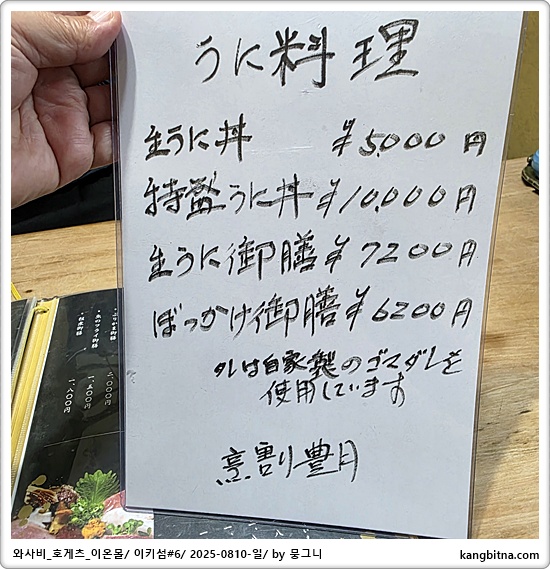 うに料理
生うに丼 ¥5,000円
特盛うに丼 ¥10,000円
生うに御膳 ¥7200円
ぶっかけ御膳 ¥6200円
タレは自家製のゴマダレを
使用しています
烹割り豊月
二、〇〇〇円
一、五〇〇円
一、八〇〇円
와사비_호게츠_이온몰/ 이키섬#6/ 2025-0810-일/ by 몽그니
kangbitna.com